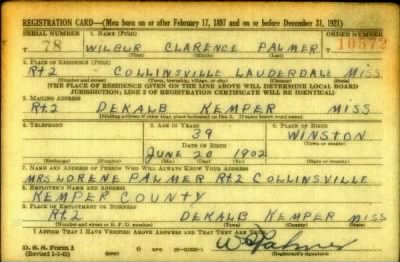 REGISTRATION CARD—(Men born on or after February 17, 1897 and on or before December 31, 1921)
SERIAL NUMBER 1. NAME (Print) ORDER NUMBER
T 78 WILBUR CLARENCE PALMER T 10572
(First) (Middle) (Last)
2. PLACE OF RESIDENCE (Print)
Rt2 COLLINSVILLE LAUDERDALE MISS
(Number and street) (Town, township, village, or city) (County) (State)
[THE PLACE OF RESIDENCE GIVEN ON THE LINE ABOVE WILL DETERMINE LOCAL BOARD
JURISDICTION; LINE 2 OF REGISTRATION CERTIFICATE WILL BE IDENTICAL]
3. MAILING ADDRESS
Rt2 DEKALB KEMPER MISS
[Mailing address if other than place indicated on line 2. If same insert word same]
4. TELEPHONE 5. AGE IN YEARS 6. PLACE OF BIRTH
39 WINSTON
DATE OF BIRTH (Town or county)
JUNE 20 1902
(Exchange) (Number) (Mo.) (Day) (Yr.) (State or country)
7. NAME AND ADDRESS OF PERSON WHO WILL ALWAYS KNOW YOUR ADDRESS
MRS LORENE PALMER Rt2 COLLINSVILLE
8. EMPLOYER'S NAME AND ADDRESS
KEMPER COUNTY
9. PLACE OF EMPLOYMENT OR BUSINESS
Rt.2 DEKALB KEMPER MISS
(Number and street or R. F. D. number) (Town) (County) (State)
I AFFIRM THAT I HAVE VERIFIED ABOVE ANSWERS AND THAT THEY ARE TRUE.
D. S. S. Form 1
(Revised 1-1-42) GPO 16—21630-1 (Registrant's signature)
Palmer